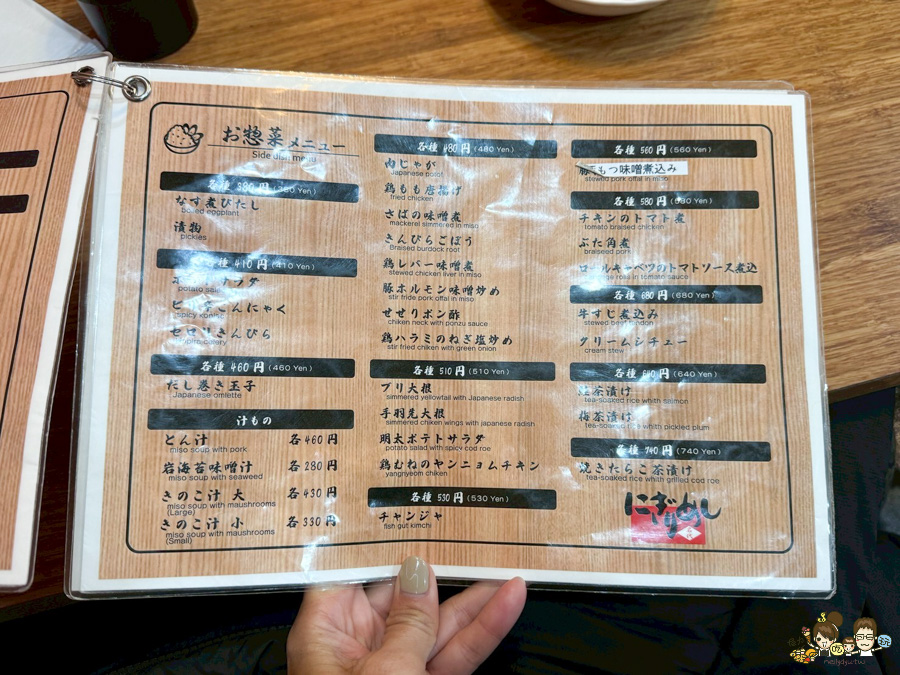 お惣菜メニュー
Side dish menu
各種 380 円 (380 Yen)
なす煮びたし
boiled eggplant
漬物
pickles
各種 410 円 (410 Yen)
ピ
こんにゃく
spicy
せせりきんぴら
各種 460 円 (460 Yen)
だし巻き玉子
Japanese omlette
汁もの
とん汁 各 460 円
miso soup with pork
岩海苔味噌汁 各 280 円
miso soup with seaweed
きのこ汁 大 各 430 円
miso soup with maushrooms
(Large)
きのこ汁 小 各 330 円
miso soup with maushrooms
(Small)
各種 480 円 (480 Yen)
肉じゃが
Japanese potof
鶏もも唐揚げ
fried chicken
さばの味噌煮
mackerel simmered in miso
きんぴらごぼう
Braised burdock root
鶏レバー味噌煮
stewed chicken liver in miso
豚ホルモン味噌炒め
stir fride pork offal in miso
せせりポン酢
chiken neck with ponzu sauce
鶏ハラミのねぎ塩炒め
stir fried chiken with green onion
各種 510 円 (510 Yen)
ブリ大根
simmered yellowtail with Japanese radish
手羽先大根
simmered chiken wings with japanese radish
明太ポテトサラダ
potato salad with spicy cod roe
鶏むねのヤンニョムチキン
yangnyeom chiken
各種 530 円 (530 Yen)
チャンジャ
fish gut kimchi
各種 560 円 (560 Yen)
もつ味噌煮込み
stewed pork offal in miso
各種 580 円 (580 Yen)
チキンのトマト煮
tomato braised chicken
ぶた角煮
braised pork
ロールキャベツのトマトソース煮込
各種 680 円 (680 Yen)
牛すじ煮込み
stewed beef tendon
クリームシチュー
cream stew
各種 640 円 (640 Yen)
鮭茶漬け
tea-soaked rice whith salmon
梅茶漬け
tea-soaked rice whith pickled plum
各種 740 円 (740 Yen)
焼きたらこ茶漬け
tea-soaked rice whith grilled cod roe
にぎりめし